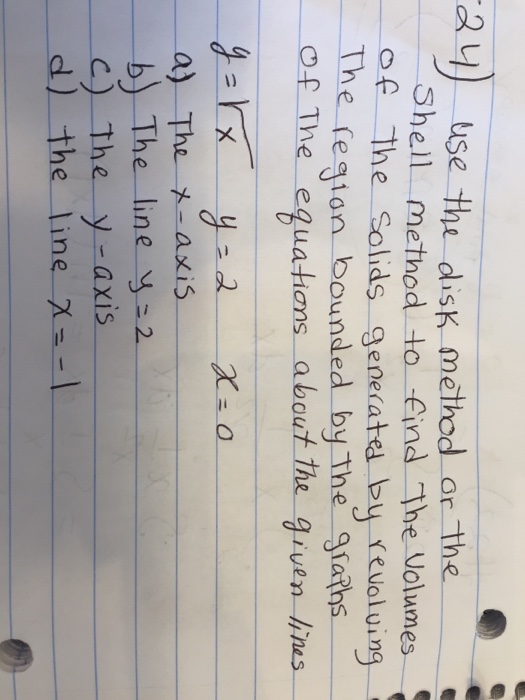 24) Use the disk method or the
Shell method to find The Volumes
of the solids generated by revolving
The region bounded by the graphs
of The equations about the given lines
y = √x y = 2 x = 0
a) The x-axis
b) The line y = 2
c) The y-axis
d) the line x = -1